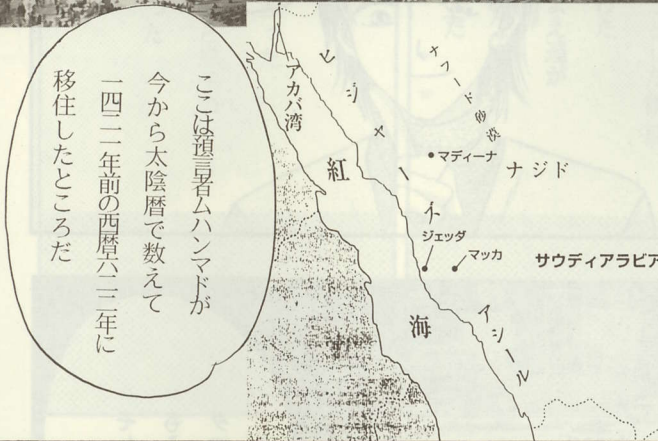 ここは預言者ムハンマドが
今から太陰暦で数えて
一四二一年前の西暦六二二年に
移住したところだ
アカバ湾
紅
海
ヒジャーズ
ナフード砂漠
マディーナ
ナジド
ジェッダ
マッカ
サウディアラビア
アシール